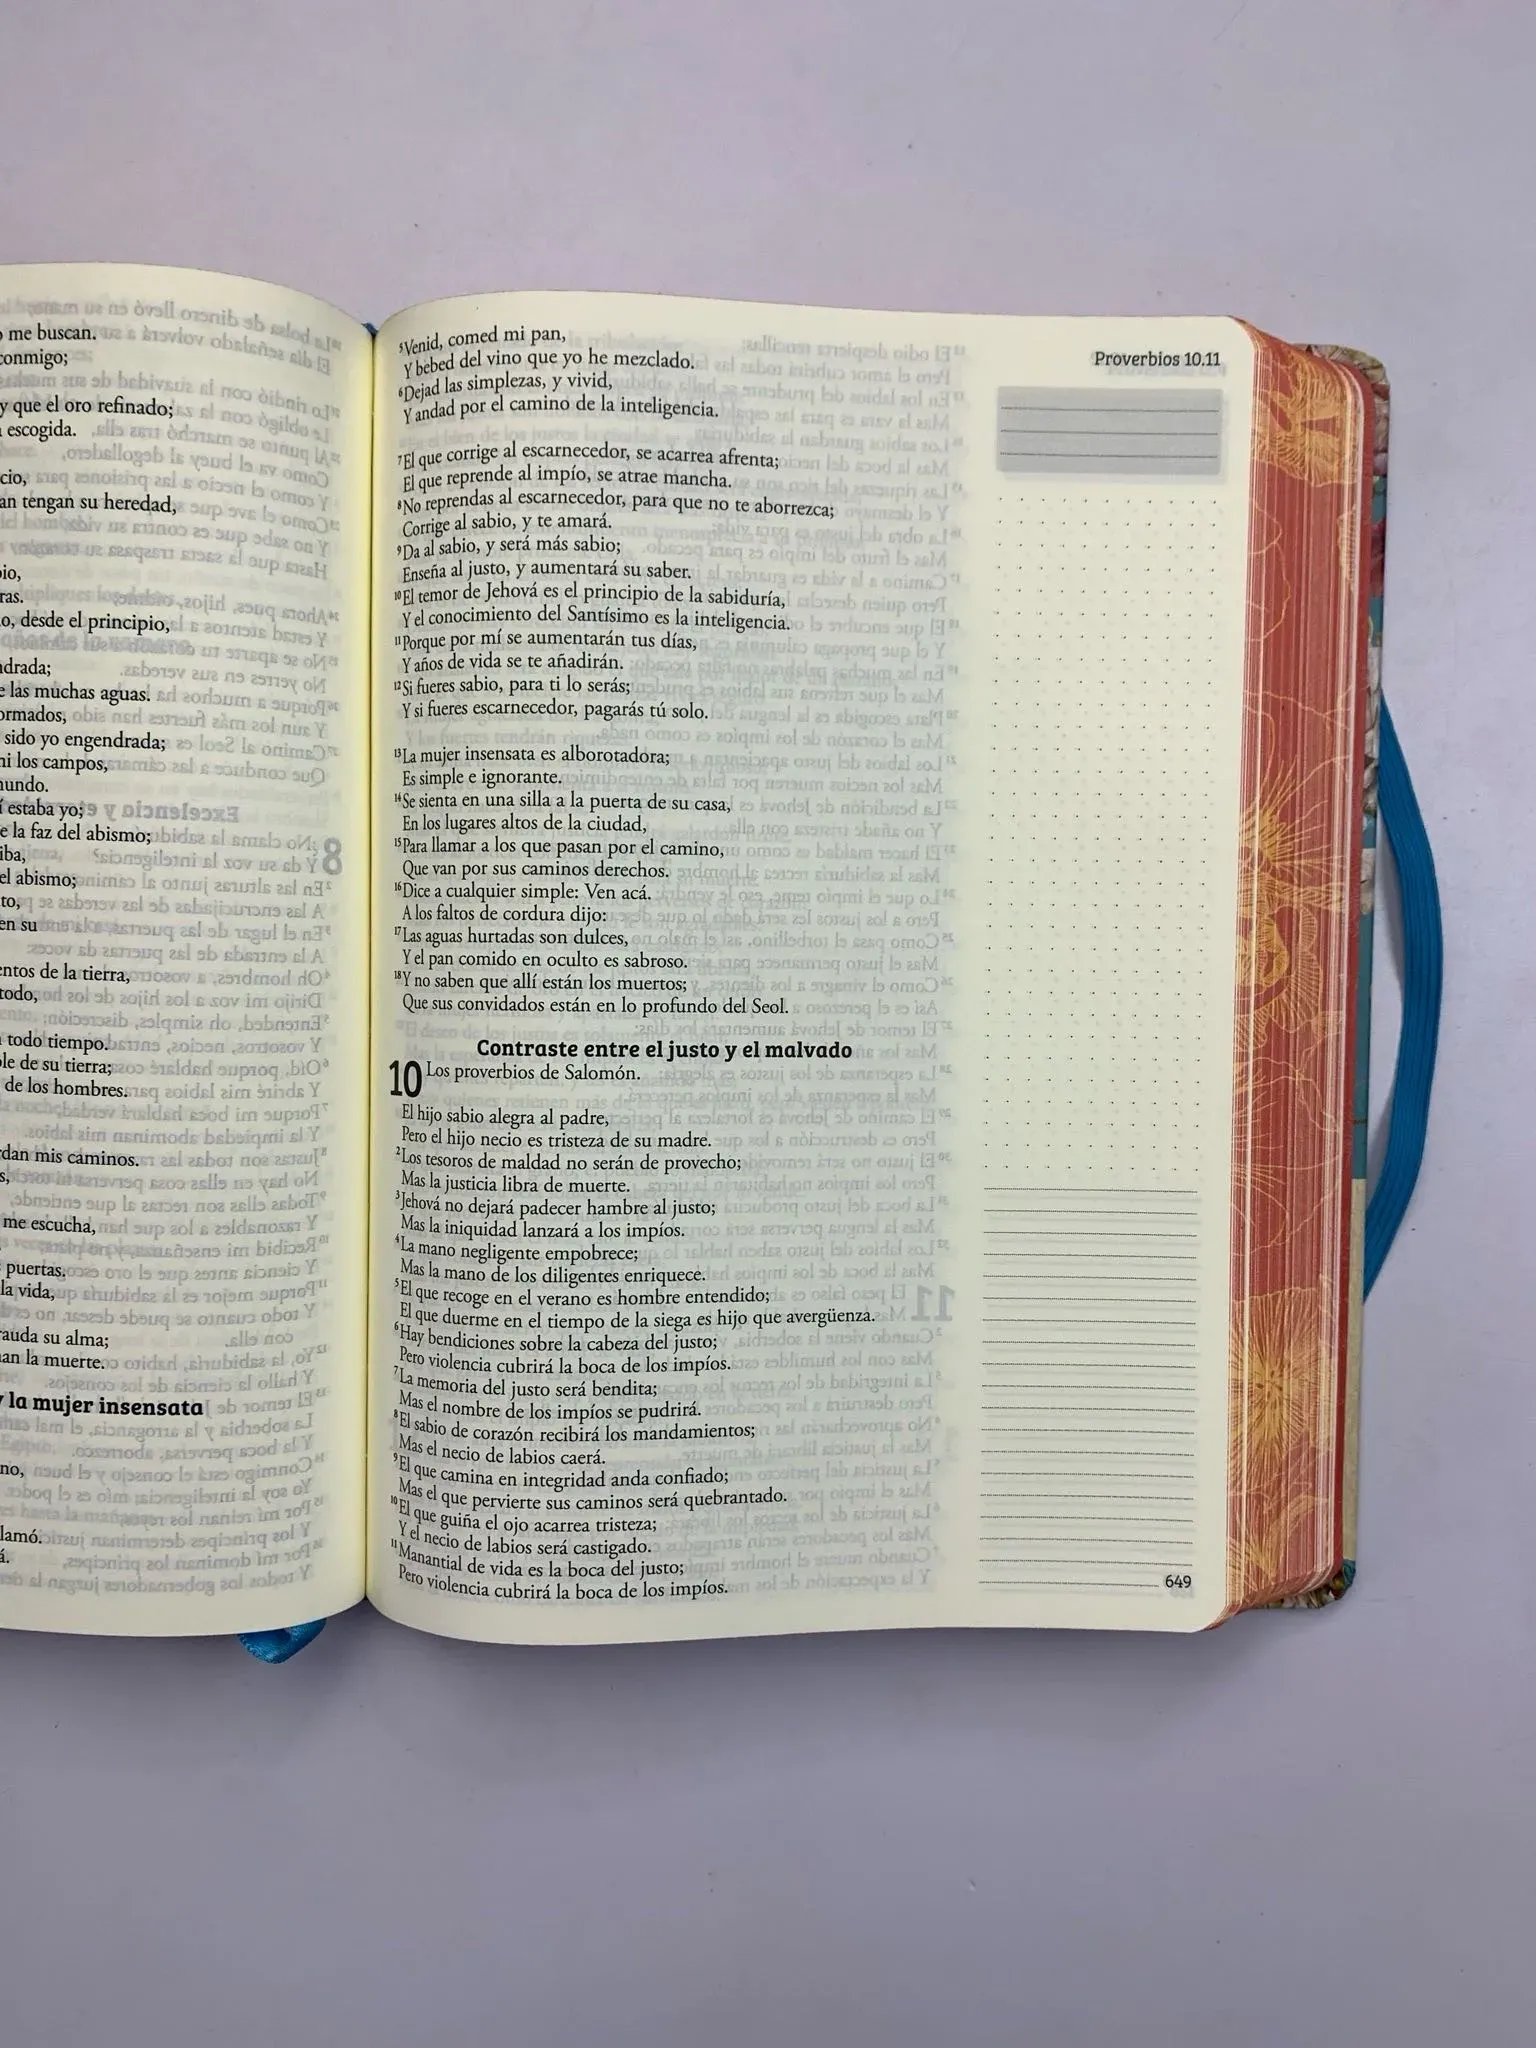 o me buscan.
conmigo;
y que el oro refinado;
escogida.
cio,
an tengan su heredad,
bio,
ras.
o, desde el principio,
ndrada;
e las muchas aguas.
ormados,
sido yo engendrada;
ni los campos,
mundo.
í estaba yo;
e la faz del abismo;
iba,
el abismo;
to,
en su
entos de la tierra,
todo,
todo tiempo.
ble de su tierra;
de los hombres.
dan mis caminos.
s,
me escucha,
puertas.
la vida,
rauda su alma;
an la muerte.
y la mujer insensata
no,
lamó.
á.
Proverbios 10.11
5 Venid, comed mi pan,
Y bebed del vino que yo he mezclado.
6 Dejad las simplezas, y vivid,
Y andad por el camino de la inteligencia.
7 El que corrige al escarnecedor, se acarrea afrenta;
El que reprende al impío, se atrae mancha.
8 No reprendas al escarnecedor, para que no te aborrezca;
Corrige al sabio, y te amará.
9 Da al sabio, y será más sabio;
Enseña al justo, y aumentará su saber.
10 El temor de Jehová es el principio de la sabiduría,
Y el conocimiento del Santísimo es la inteligencia.
11 Porque por mí se aumentarán tus días,
Y años de vida se te añadirán.
12 Si fueres sabio, para ti lo serás;
Y si fueres escarnecedor, pagarás tú solo.
13 La mujer insensata es alborotadora;
Es simple e ignorante.
14 Se sienta en una silla a la puerta de su casa,
En los lugares altos de la ciudad,
15 Para llamar a los que pasan por el camino,
Que van por sus caminos derechos.
16 Dice a cualquier simple: Ven acá.
A los faltos de cordura dijo:
17 Las aguas hurtadas son dulces,
Y el pan comido en oculto es sabroso.
18 Y no saben que allí están los muertos;
Que sus convidados están en lo profundo del Seol.
Contraste entre el justo y el malvado
10 Los proverbios de Salomón.
El hijo sabio alegra al padre,
Pero el hijo necio es tristeza de su madre.
2 Los tesoros de maldad no serán de provecho;
Mas la justicia libra de muerte.
3 Jehová no dejará padecer hambre al justo;
Mas la iniquidad lanzará a los impíos.
4 La mano negligente empobrece;
Mas la mano de los diligentes enriquece.
5 El que recoge en el verano es hombre entendido;
El que duerme en el tiempo de la siega es hijo que avergüenza.
6 Hay bendiciones sobre la cabeza del justo;
Pero violencia cubrirá la boca de los impíos.
7 La memoria del justo será bendita;
Mas el nombre de los impíos se pudrirá.
8 El sabio de corazón recibirá los mandamientos;
Mas el necio de labios caerá.
9 El que camina en integridad anda confiado;
Mas el que pervierte sus caminos será quebrantado.
10 El que guiña el ojo acarrea tristeza;
Y el necio de labios será castigado.
11 Manantial de vida es la boca del justo;
Pero violencia cubrirá la boca de los impíos.
649